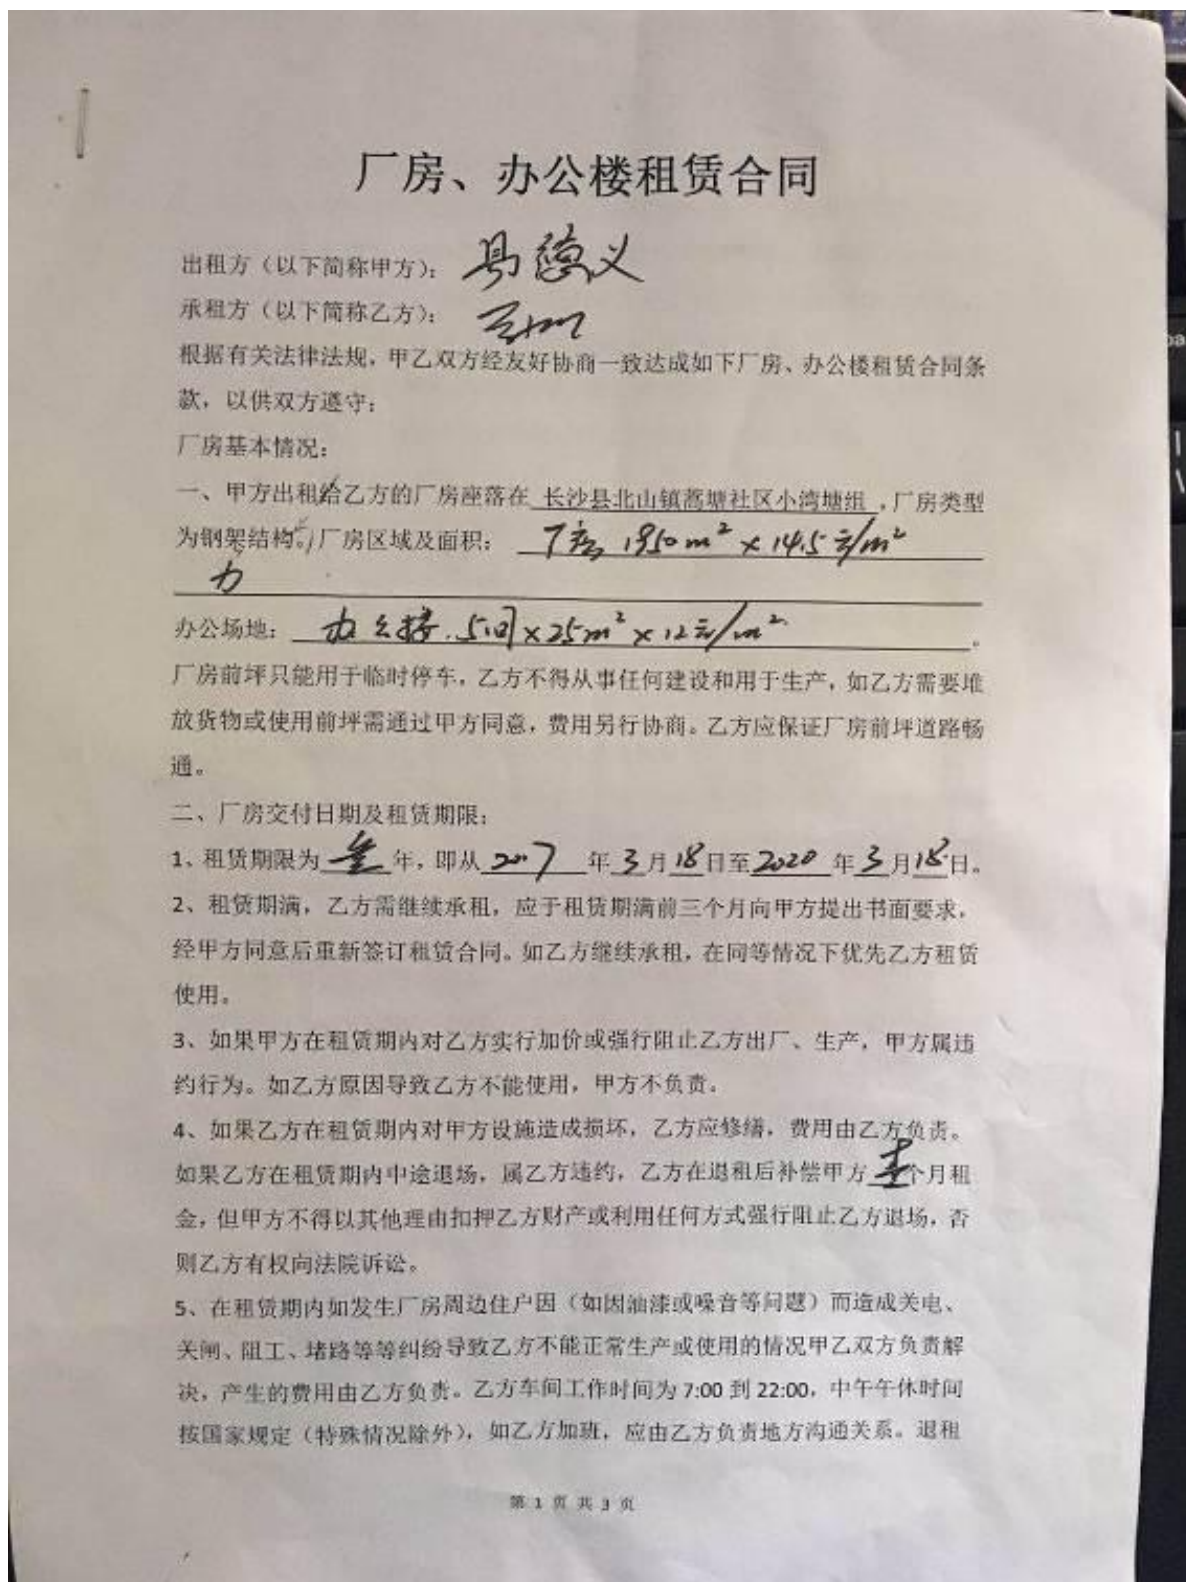 厂房、办公楼租赁合同
出租方（以下简称甲方）： 易德义
承租方（以下简称乙方）：
根据有关法律法规，甲乙双方经友好协商一致达成如下厂房、办公楼租赁合同条
款，以供双方遵守：
厂房基本情况：
一、甲方出租给乙方的厂房座落在 长沙县北山镇蒿塘社区小湾塘组 ，厂房类型
为钢架结构。厂房区域及面积： 厂房 1950m² × 14.5元/m²
办
办公场地： 办公楼.5间×25m²×12元/m² 。
厂房前坪只能用于临时停车，乙方不得从事任何建设和用于生产，如乙方需要堆
放货物或使用前坪需通过甲方同意，费用另行协商。乙方应保证厂房前坪道路畅
通。
二、厂房交付日期及租赁期限：
1、租赁期限为 叁 年，即从 2017 年 3 月 18 日至 2020 年 3 月 18 日。
2、租赁期满，乙方需继续承租，应于租赁期满前三个月向甲方提出书面要求，
经甲方同意后重新签订租赁合同。如乙方继续承租，在同等情况下优先乙方租赁
使用。
3、如果甲方在租赁期内对乙方实行加价或强行阻止乙方出厂、生产，甲方属违
约行为。如乙方原因导致乙方不能使用，甲方不负责。
4、如果乙方在租赁期内对甲方设施造成损坏，乙方应修缮，费用由乙方负责。
如果乙方在租赁期内中途退场，属乙方违约，乙方在退租后补偿甲方 个月租
金，但甲方不得以其他理由扣押乙方财产或利用任何方式强行阻止乙方退场，否
则乙方有权向法院诉讼。
5、在租赁期内如发生厂房周边住户因（如因油漆或噪音等问题）而造成关电、
关闸、阻工、堵路等等纠纷导致乙方不能正常生产或使用的情况甲乙双方负责解
决，产生的费用由乙方负责。乙方车间工作时间为 7:00 到 22:00，中午午休时间
按国家规定（特殊情况除外），如乙方加班，应由乙方负责地方沟通关系。退租
第 1 页 共 3 页